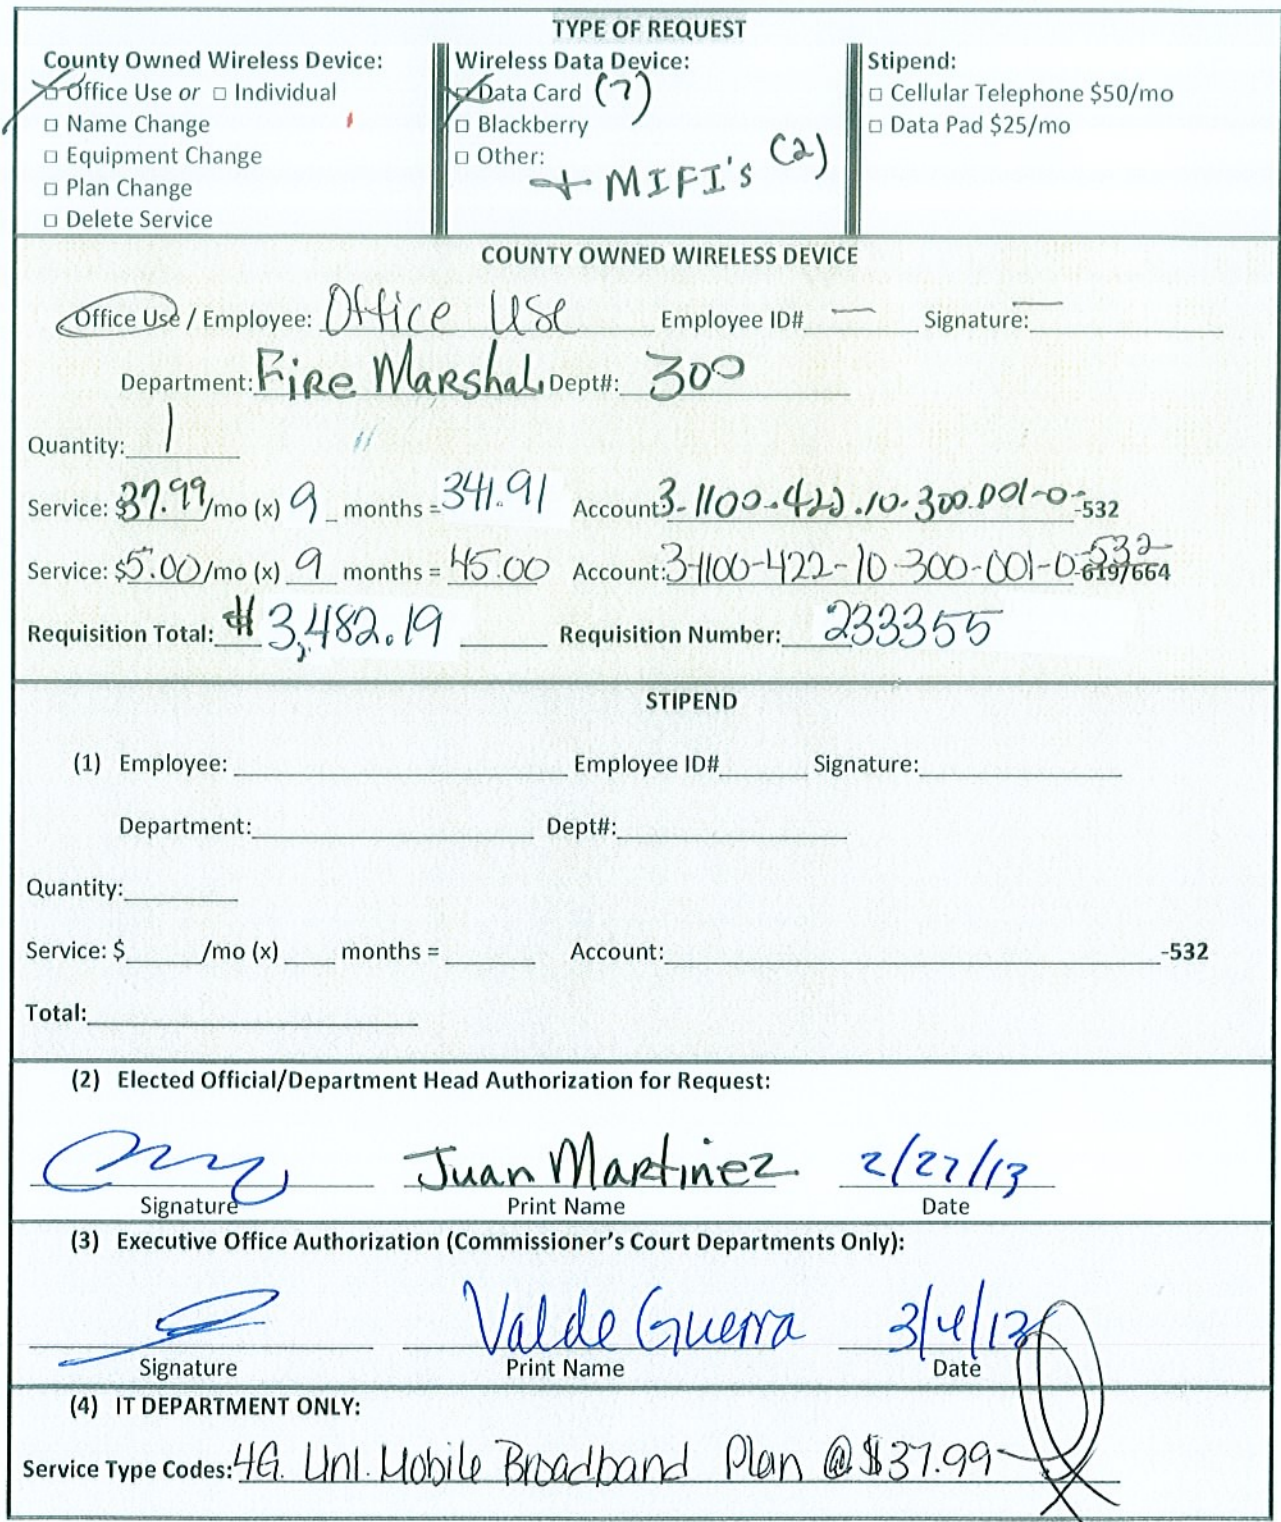 TYPE OF REQUEST
County Owned Wireless Device:
□ Office Use or □ Individual
□ Name Change
□ Equipment Change
□ Plan Change
□ Delete Service
Wireless Data Device:
□ Data Card (7)
□ Blackberry
□ Other:
+ MIFI's (2)
Stipend:
□ Cellular Telephone $50/mo
□ Data Pad $25/mo
COUNTY OWNED WIRELESS DEVICE
Office Use / Employee: Office Use Employee ID# — Signature: —
Department: Fire Marshal Dept#: 300
Quantity: 1
Service: $37.99/mo (x) 9 months = 341.91 Account: 3-1100-422-10-300-001-0-532
Service: $5.00/mo (x) 9 months = 45.00 Account: 3-1100-422-10-300-001-0-532 -619/664
Requisition Total: # 3,482.19 Requisition Number: 233355
STIPEND
(1) Employee: Employee ID# Signature:
Department: Dept#:
Quantity:
Service: $ /mo (x) months = Account: -532
Total:
(2) Elected Official/Department Head Authorization for Request:
Juan Martinez 2/27/13
Signature Print Name Date
(3) Executive Office Authorization (Commissioner's Court Departments Only):
Valde Guerra 3/4/13
Signature Print Name Date
(4) IT DEPARTMENT ONLY:
Service Type Codes: 4G. Unl. Mobile Broadband Plan @ $37.99